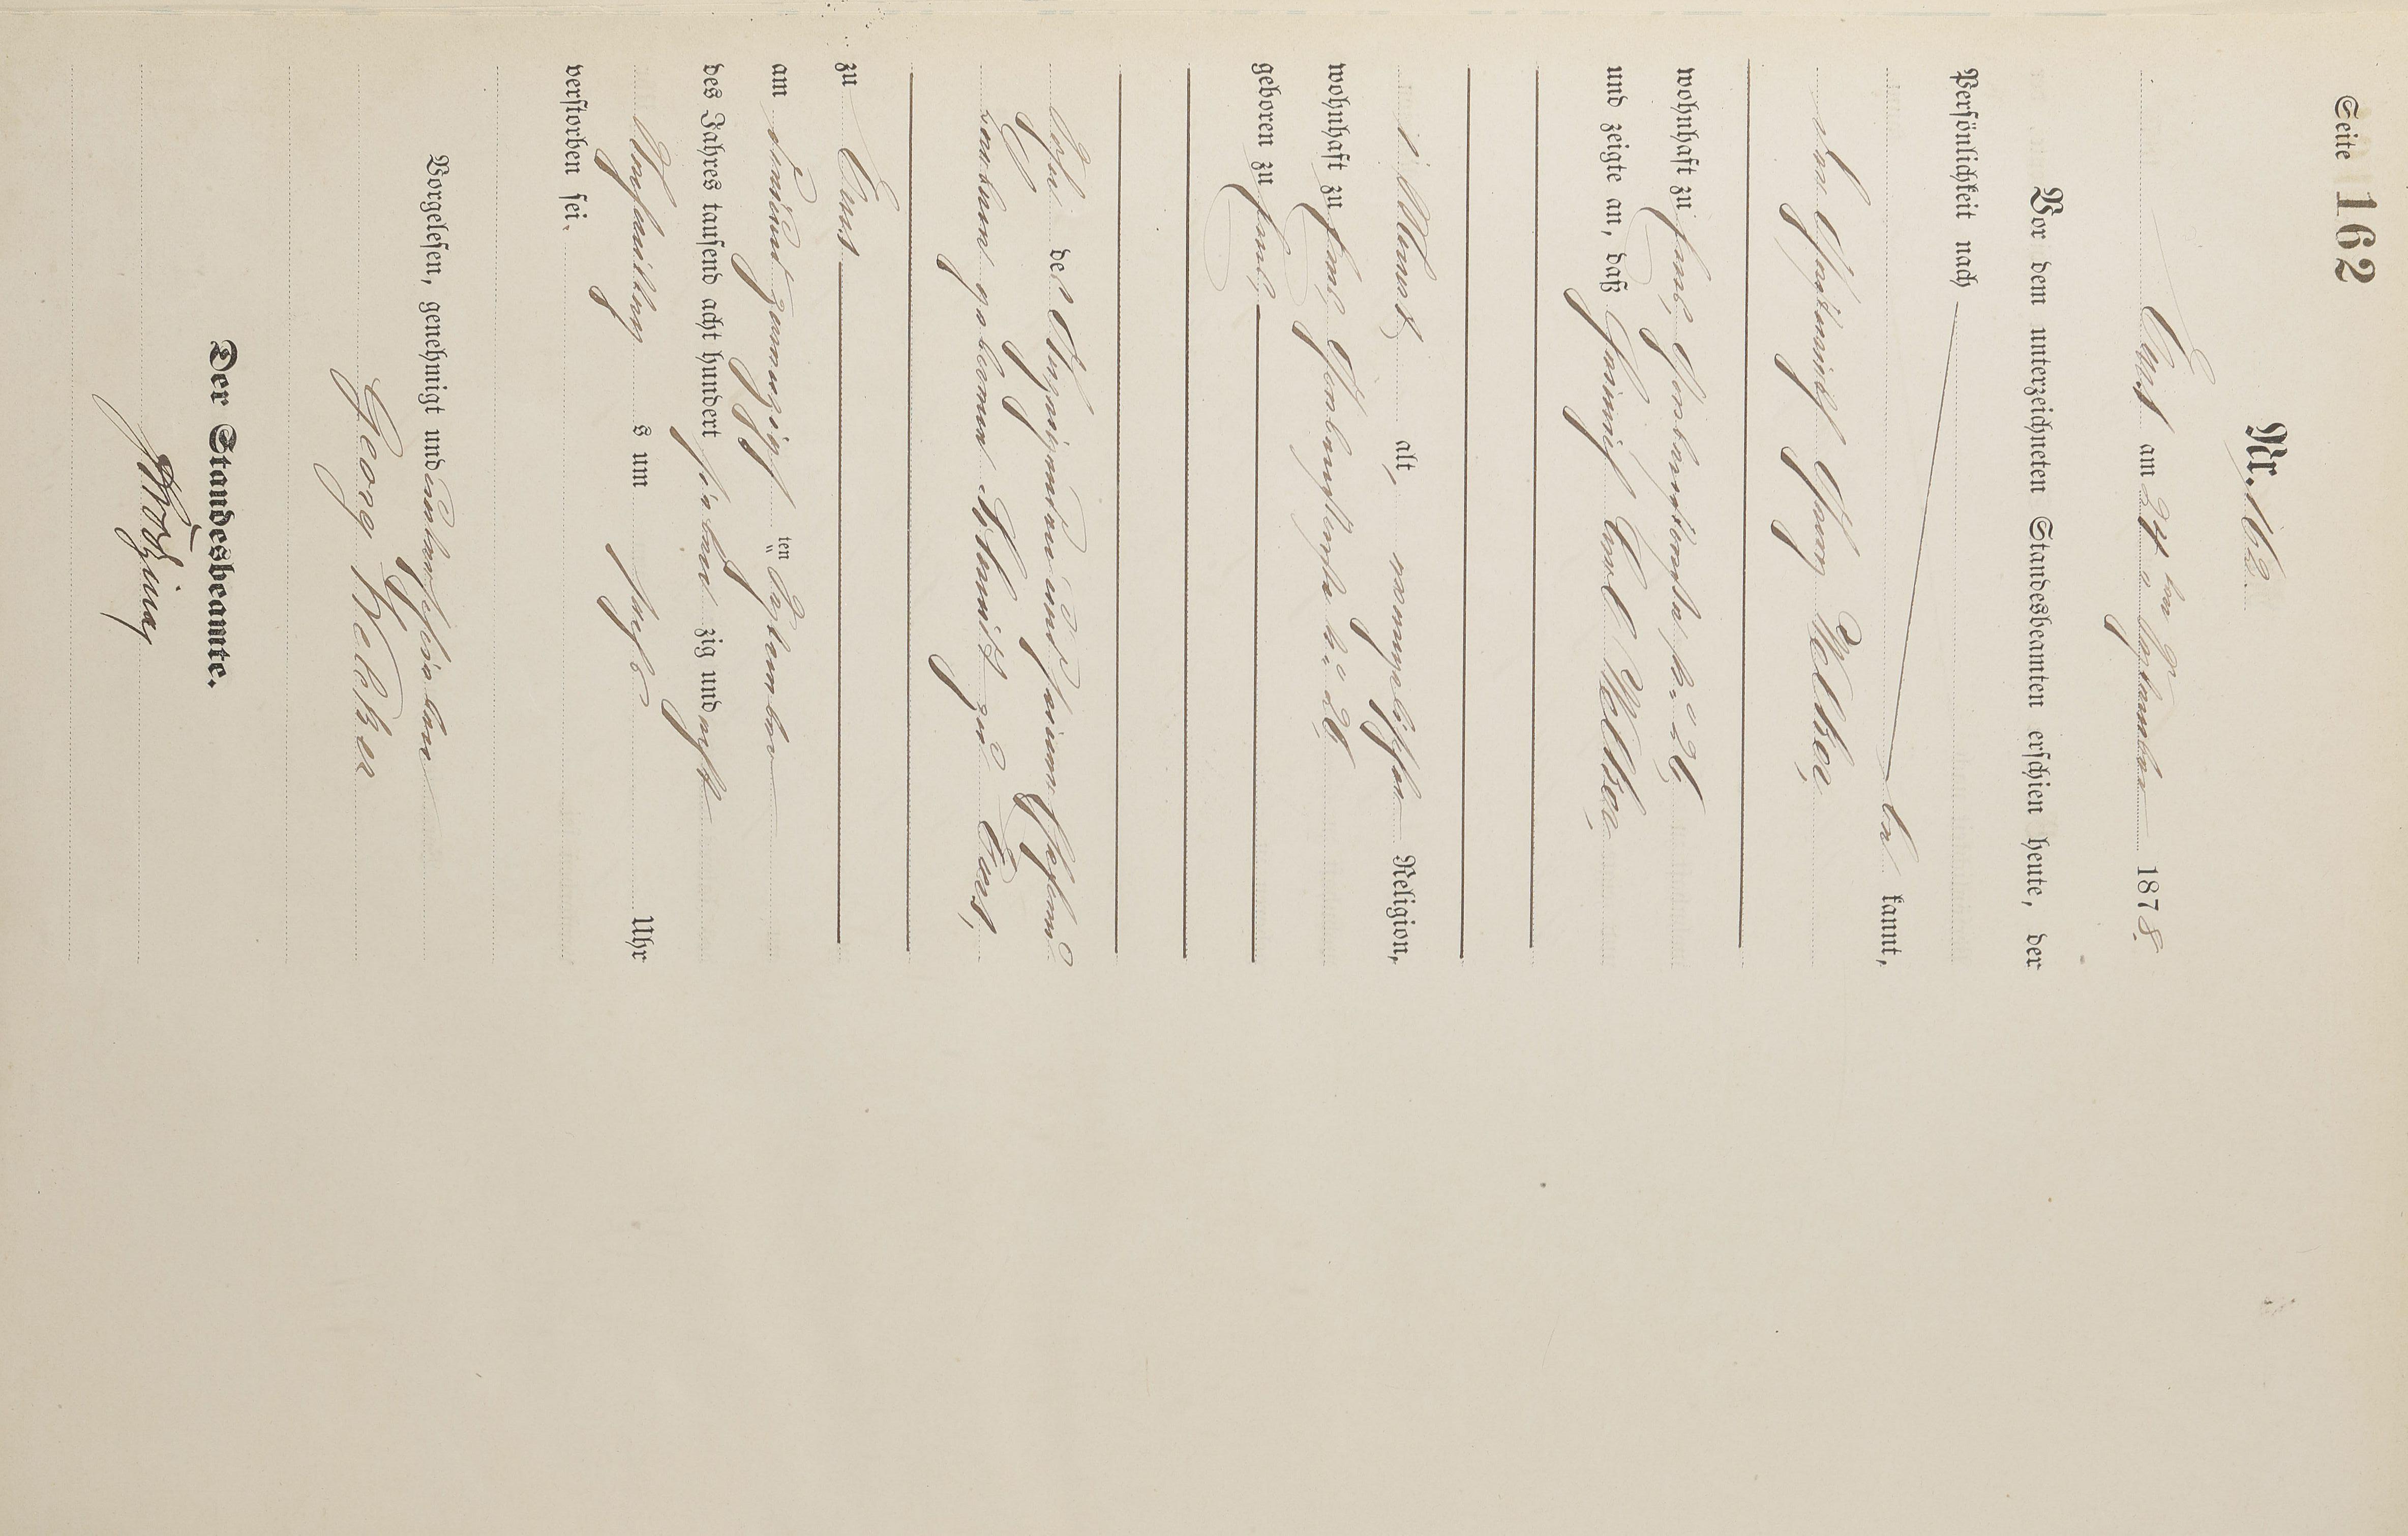 Seite 162
Nr. 162
Ems am 24ten September 1878.
Vor dem unterzeichneten Standesbeamten erschien heute, der
Persönlichkeit nach
be kannt,
Georg Welker,
wohnhaft zu Ems, No 26
und zeigte an, daß Heinrich Carl Welker,
1 Monat alt, evangelischer Religion,
wohnhaft zu Ems, No 26
geboren zu Ems,
Sohn des Anzeigenden und seiner Ehefrau
geborene Schmidt zu Ems,
zu Ems
am vierundzwanzigsten September
des Jahres tausend acht hundert siebenzig und acht
Vormittags um sechs Uhr
verstorben sei.
Vorgelesen, genehmigt und unterschrieben
Georg Welker
Der Standesbeamte.